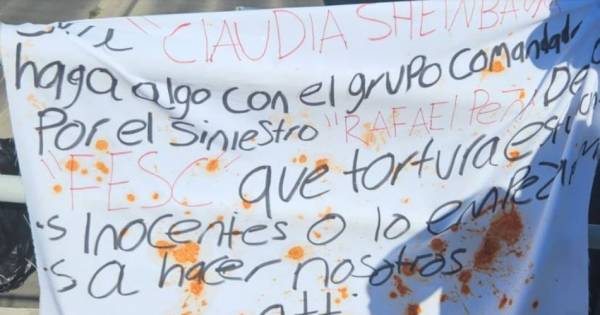 "CLAUDIA SHEINBAUM
haga algo con el grupo comandado
Por el Siniestro "RAFAEL Peña De
"FESC" que tortura
s Inocentes o lo empezam
s a hacer nosotros
att.